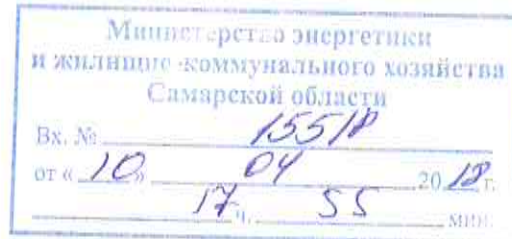 Министерство энергетики
и жилищно-коммунального хозяйства
Самарской области
Вх. №
от « 10 » 04 2018 г.
17 ч. 55 мин.